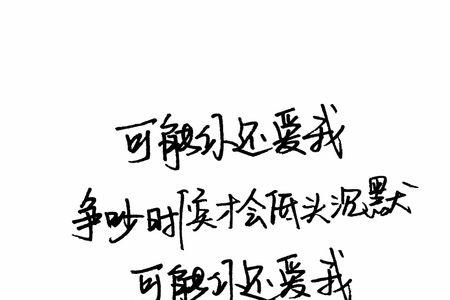 可能你还爱我
争吵时候才会低头沉默
可能你还爱我